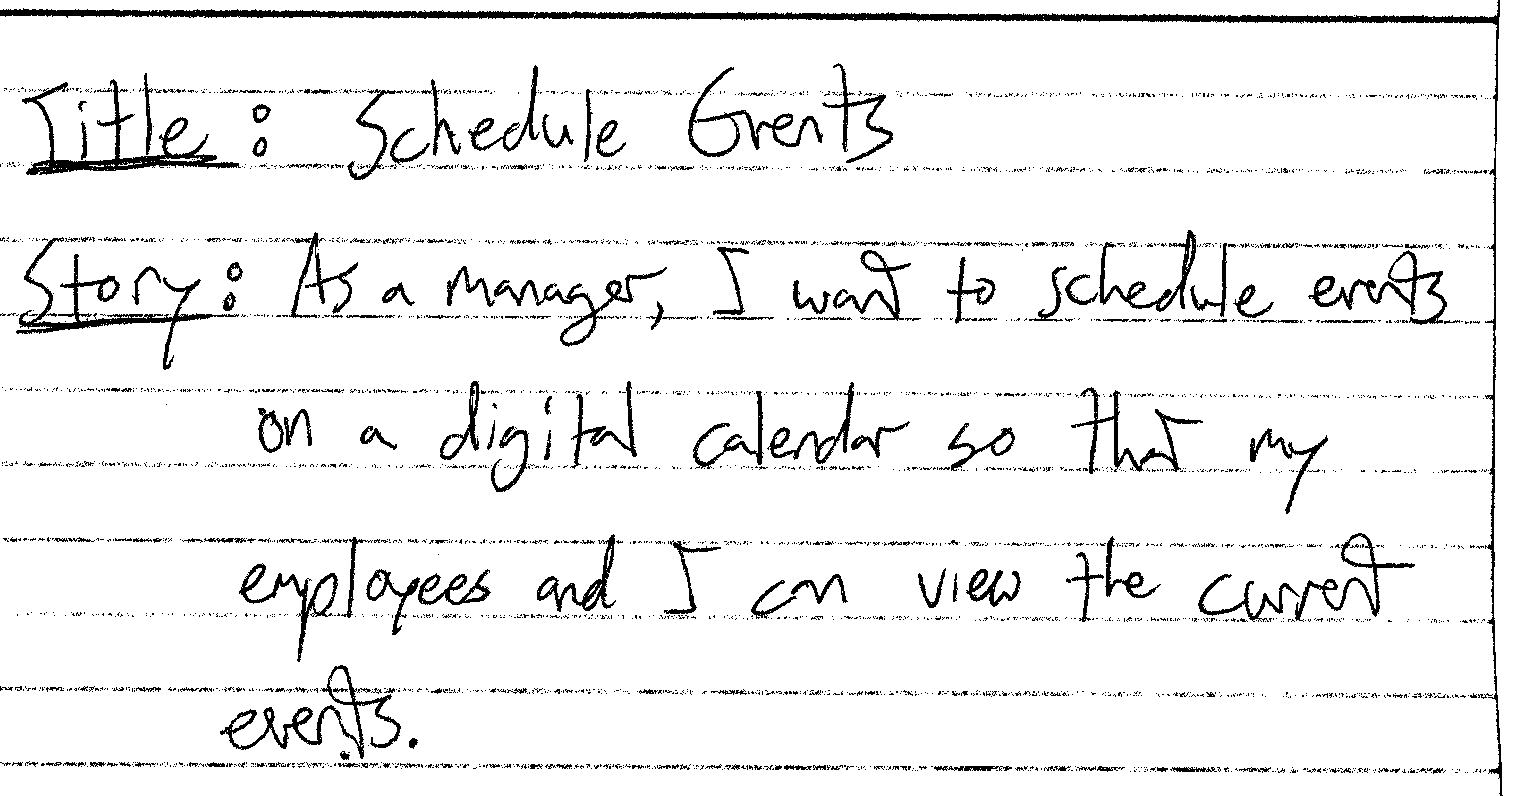 Title: Schedule Events
Story: As a manager, I want to schedule events
on a digital calendar so that my
employees and I can view the current
events.